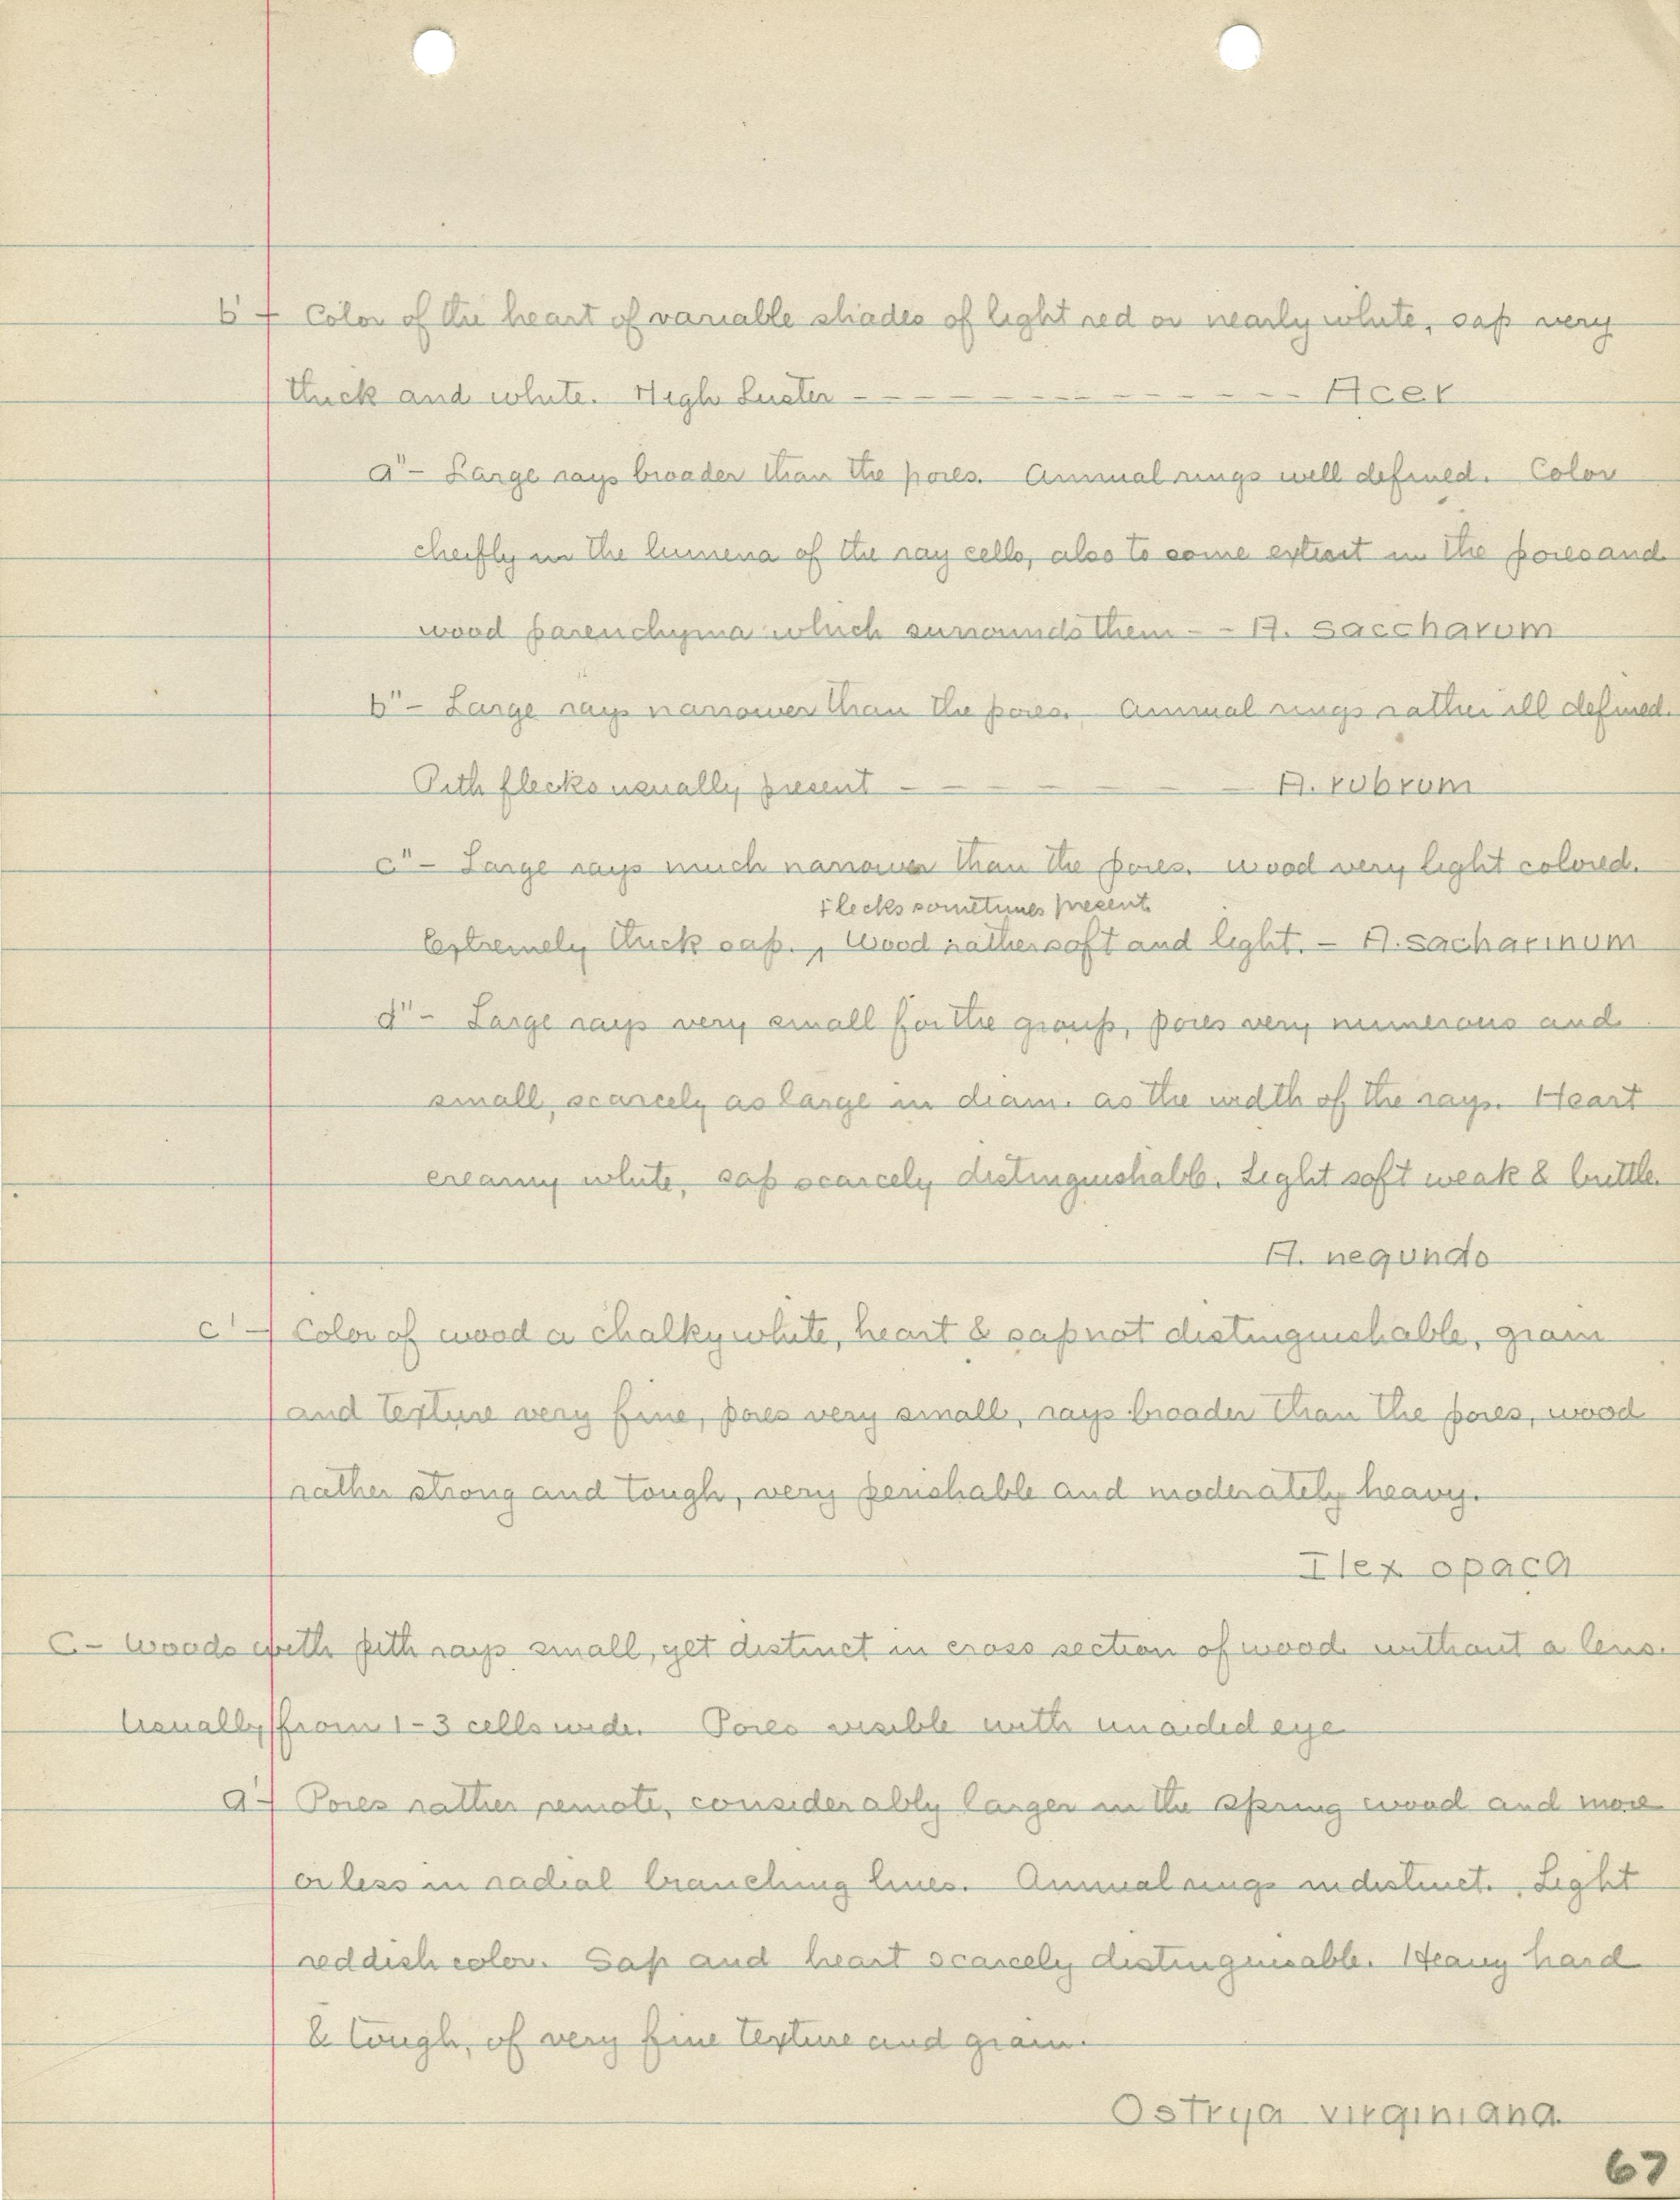 b' - Color of the heart of variable shades of light red or nearly white, sap very
thick and white. High Luster - - - - - - - - - - - - Acer
a" - Large rays broader than the pores. Annual rings well defined. Color
cheifly in the lumena of the ray cells, also to some extent in the pores and
wood parenchyma which surrounds them - - A. saccharum
b" - Large rays narrower than the pores. Annual rings rather ill defined.
Pith flecks usually present - - - - - - A. rubrum
c" - Large rays much narrower than the pores. wood very light colored.
flecks sometimes present.
Extremely thick sap., Wood rather soft and light. - A. sacharinum
d" - Large rays very small for the group, pores very numerous and
small, scarcely as large in diam. as the width of the rays. Heart
creamy white, sap scarcely distinguishable. Light soft weak & brittle.
A. negundo
c' - Color of wood a chalky white, heart & sap not distinguishable, grain
and texture very fine, pores very small, rays broader than the pores, wood
rather strong and tough, very perishable and moderately heavy.
Ilex opaca
C - Woods with pith rays small, yet distinct in cross section of wood without a lens.
Usually from 1-3 cells wide. Pores visible with unaided eye
a' - Pores rather remote, considerably larger in the spring wood and more
or less in radial branching lines. Annual rings indistinct. Light
reddish color. Sap and heart scarcely distinguisable. Heavy hard
& tough, of very fine texture and grain.
Ostrya virginiana.
67